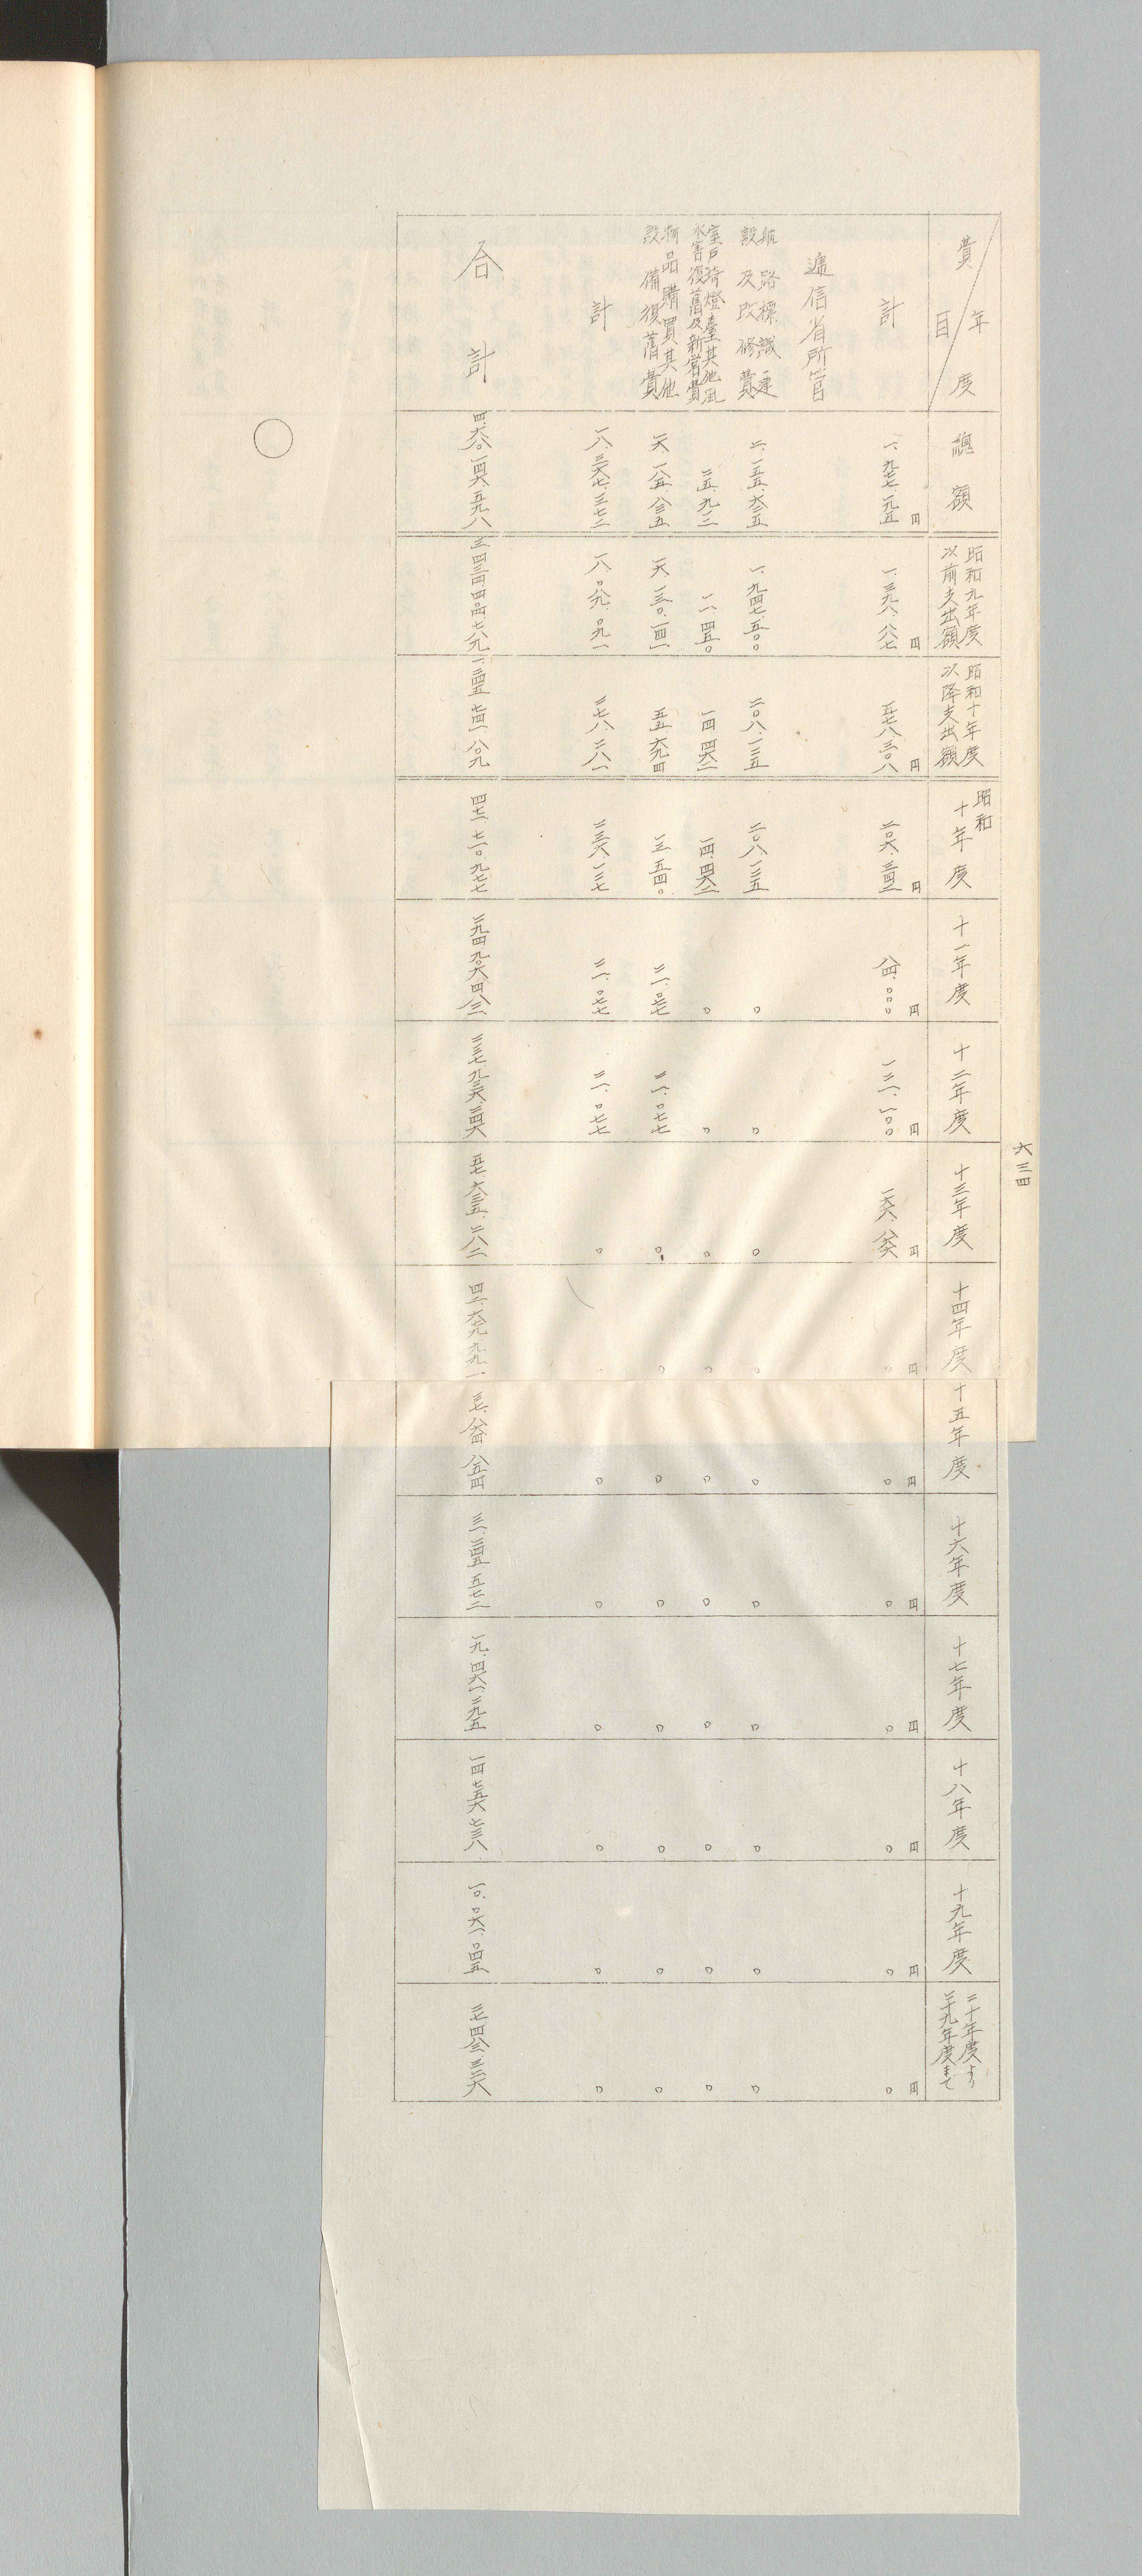 六三四
費目/年度 總額 昭和九年度以前支出額 昭和十年度以降支出額 昭和十年度 十一年度 十二年度 十三年度 十四年度 十五年度 十六年度 十七年度 十八年度 十九年度 二十年度より二十九年度まで
円 円 円 円 円 円 円 円 円 円 円 円 円 円
計 一、九七七、一九五 一、三九八、八八七 五七八、三〇八 二〇六、三四二 八四、〇〇〇 一三一、一〇〇 一五六、八六六 〇 〇 〇 〇 〇 〇 〇
遞信省所管
航路標識建設及改修費 二、一五五、六二五 一、九四七、五〇〇 二〇八、一二五 二〇八、一二五 〇 〇 〇 〇 〇 〇 〇 〇 〇 〇
室戸埼燈臺其他風水害復舊及新営費 二五、九一二 一一、四五〇 一四、四六二 一四、四六二 〇 〇 〇 〇 〇 〇 〇 〇 〇 〇
物品購買其他設備復舊費 一六、一八五、八三五 一六、一三〇、一四一 五五、六九四 一三、五四〇 二一、〇七七 二一、〇七七 〇 〇 〇 〇 〇 〇 〇 〇
計 一八、三六七、三七二 一八、〇八九、〇九一 二七八、二八一 二三六、一二七 二一、〇七七 二一、〇七七 〇 〇 〇 〇 〇 〇 〇 〇
合計 四、六八〇、一四六、五九八 三、四三四、四〇四、七八九 一、二四五、七四一、八〇九 四七一、七一〇、九七七 二九四、九〇六、四八三 二二七、九三六、二四六 五七、六三五、二八二 四二、六七九、九九一 三七、八六四、八五四 三一、二四五、五七二 一九、四六一、二九五 一四、七五六、七三八 一〇、〇六一、〇四五 三七、四八三、三二六